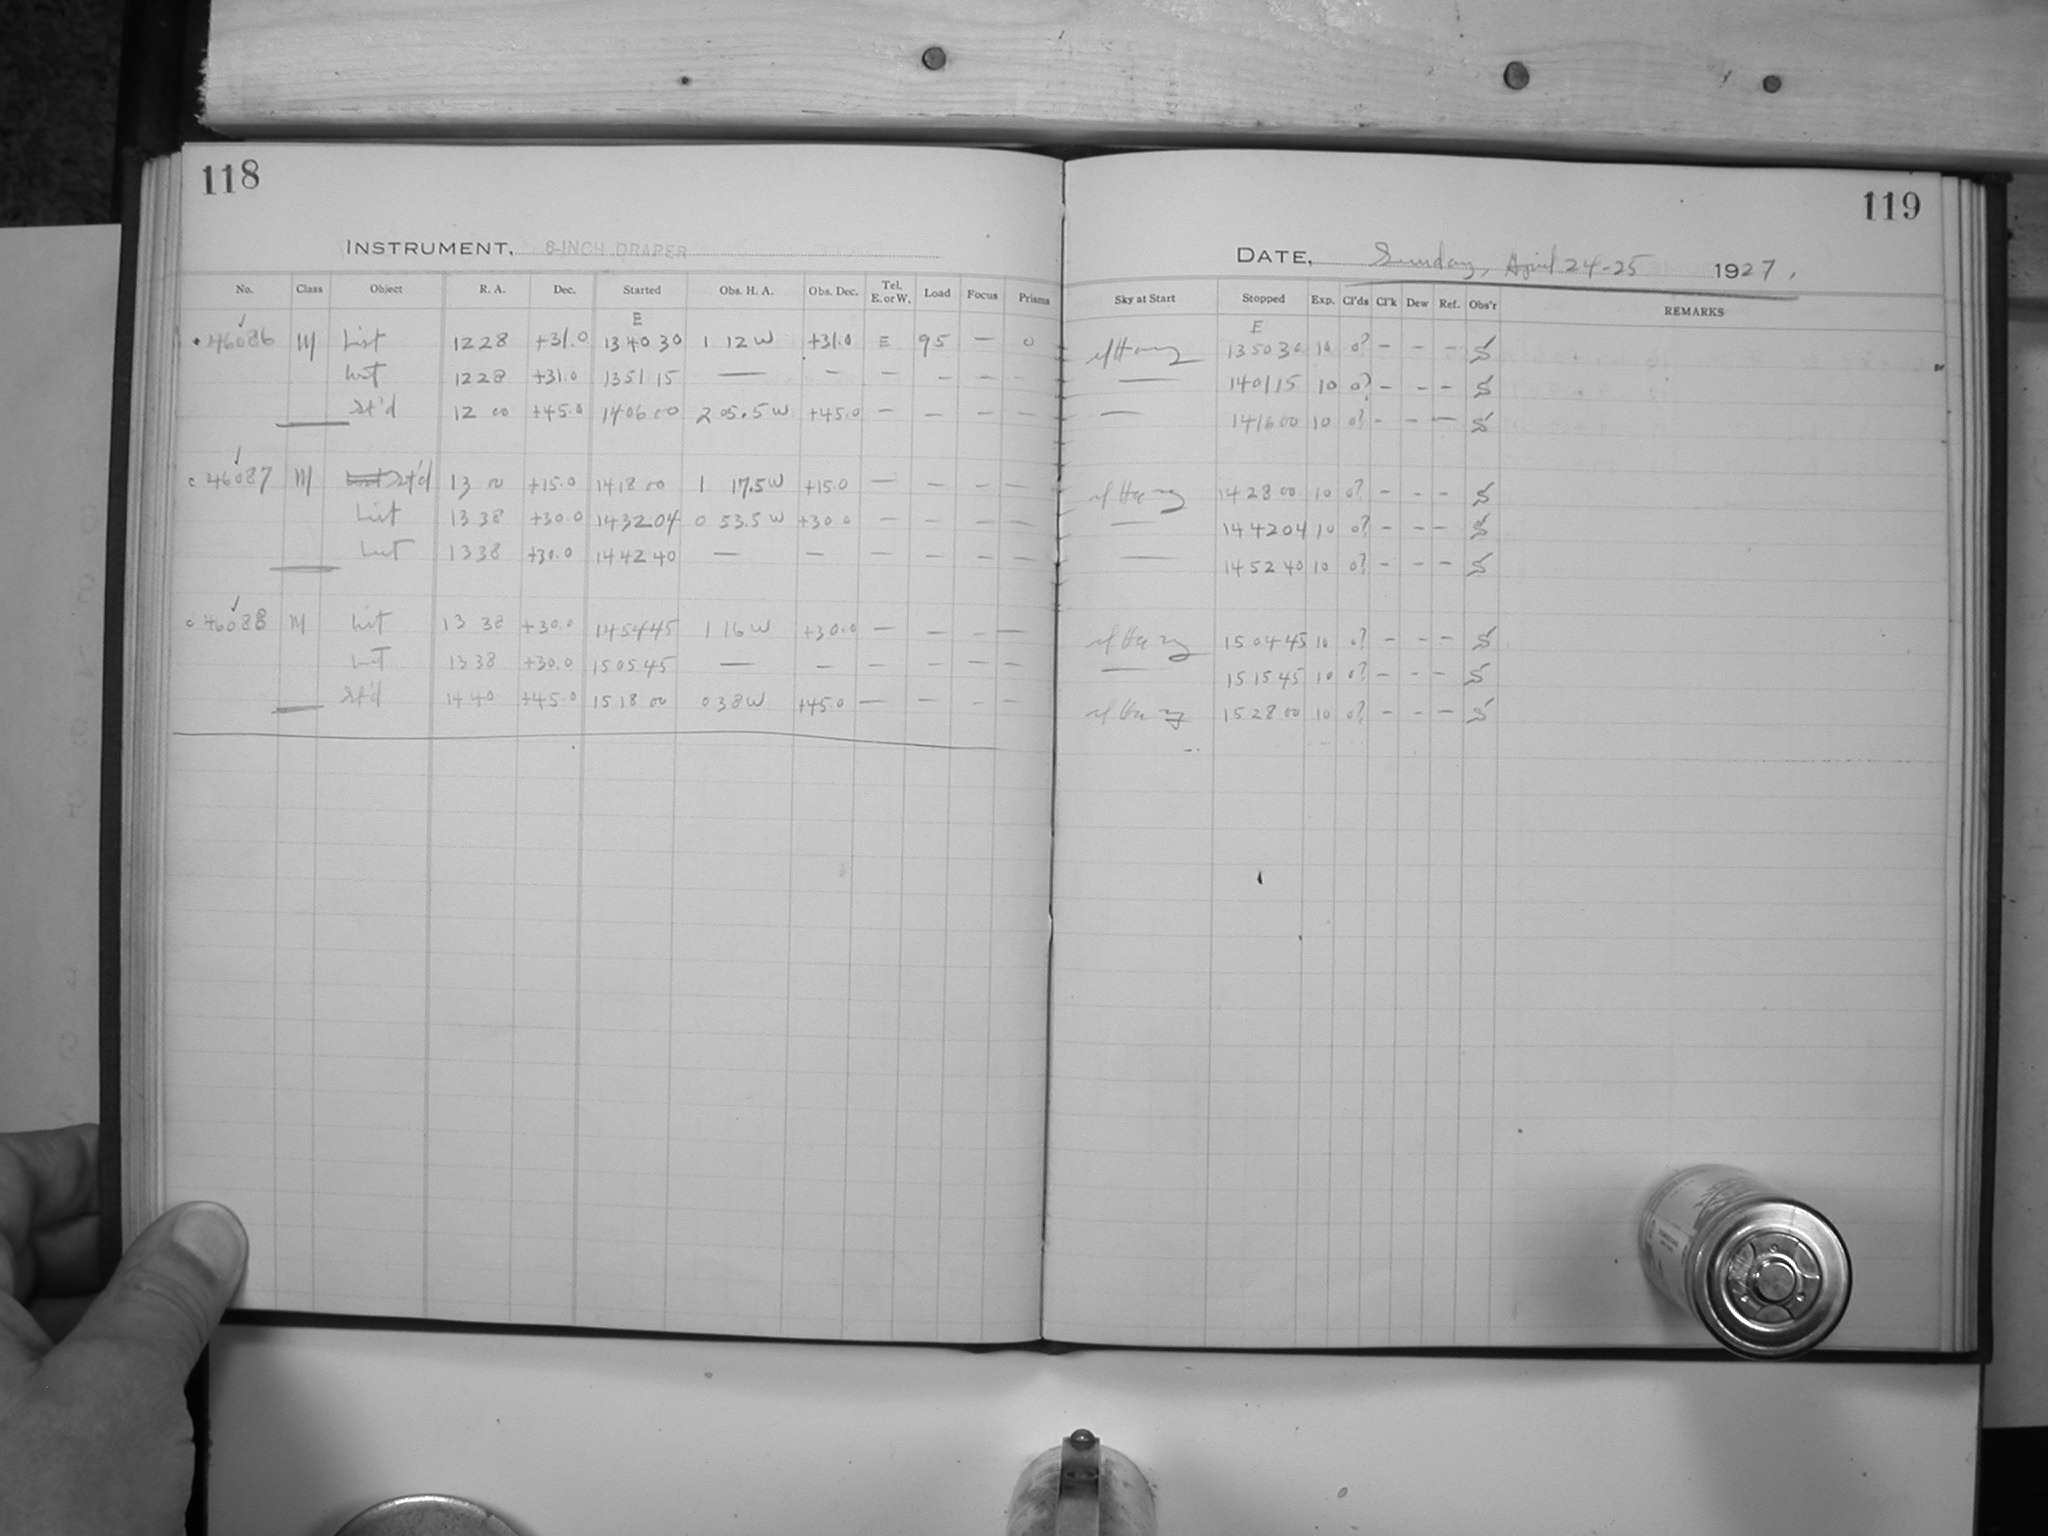 118
INSTRUMENT, 8-INCH DRAPER
No. Class Object R. A. Dec. Started Obs. H. A. Obs. Dec. Tel. E. or W. Load Focus Prisms
E
46086 M List 12 28 +31.0 13 40 30 1 12 W +31.0 E 95 — 0
List 12 28 +31.0 13 51 15 — — — — — —
St'd 12 00 +45.0 14 06 00 2 05.5 W +45.0 — — — —
c 46087 M St'd 13 00 +15.0 14 18 00 1 17.5 W +15.0 — — — —
List 13 38 +30.0 14 32 04 0 53.5 W +30.0 — — — —
List 13 38 +30.0 14 42 40 — — — — — —
c 46088 M List 13 38 +30.0 14 54 45 1 16 W +30.0 — — — —
List 13 38 +30.0 15 05 45 — — — — — —
St'd 14 40 +45.0 15 18 00 0 38 W +45.0 — — — —
119
DATE, Sunday, April 24-25 1927.
Sky at Start Stopped Exp. Cl'ds Cl'k Dew Ref. Obs'r REMARKS
E
13 50 30 10 0? — — —
— 14 01 15 10 0? — — —
— 14 16 00 10 0? — — —
14 28 00 10 0? — — —
— 14 42 04 10 0? — — —
— 14 52 40 10 0? — — —
15 04 45 10 0? — — —
— 15 15 45 10 0? — — —
15 28 00 10 0? — — —